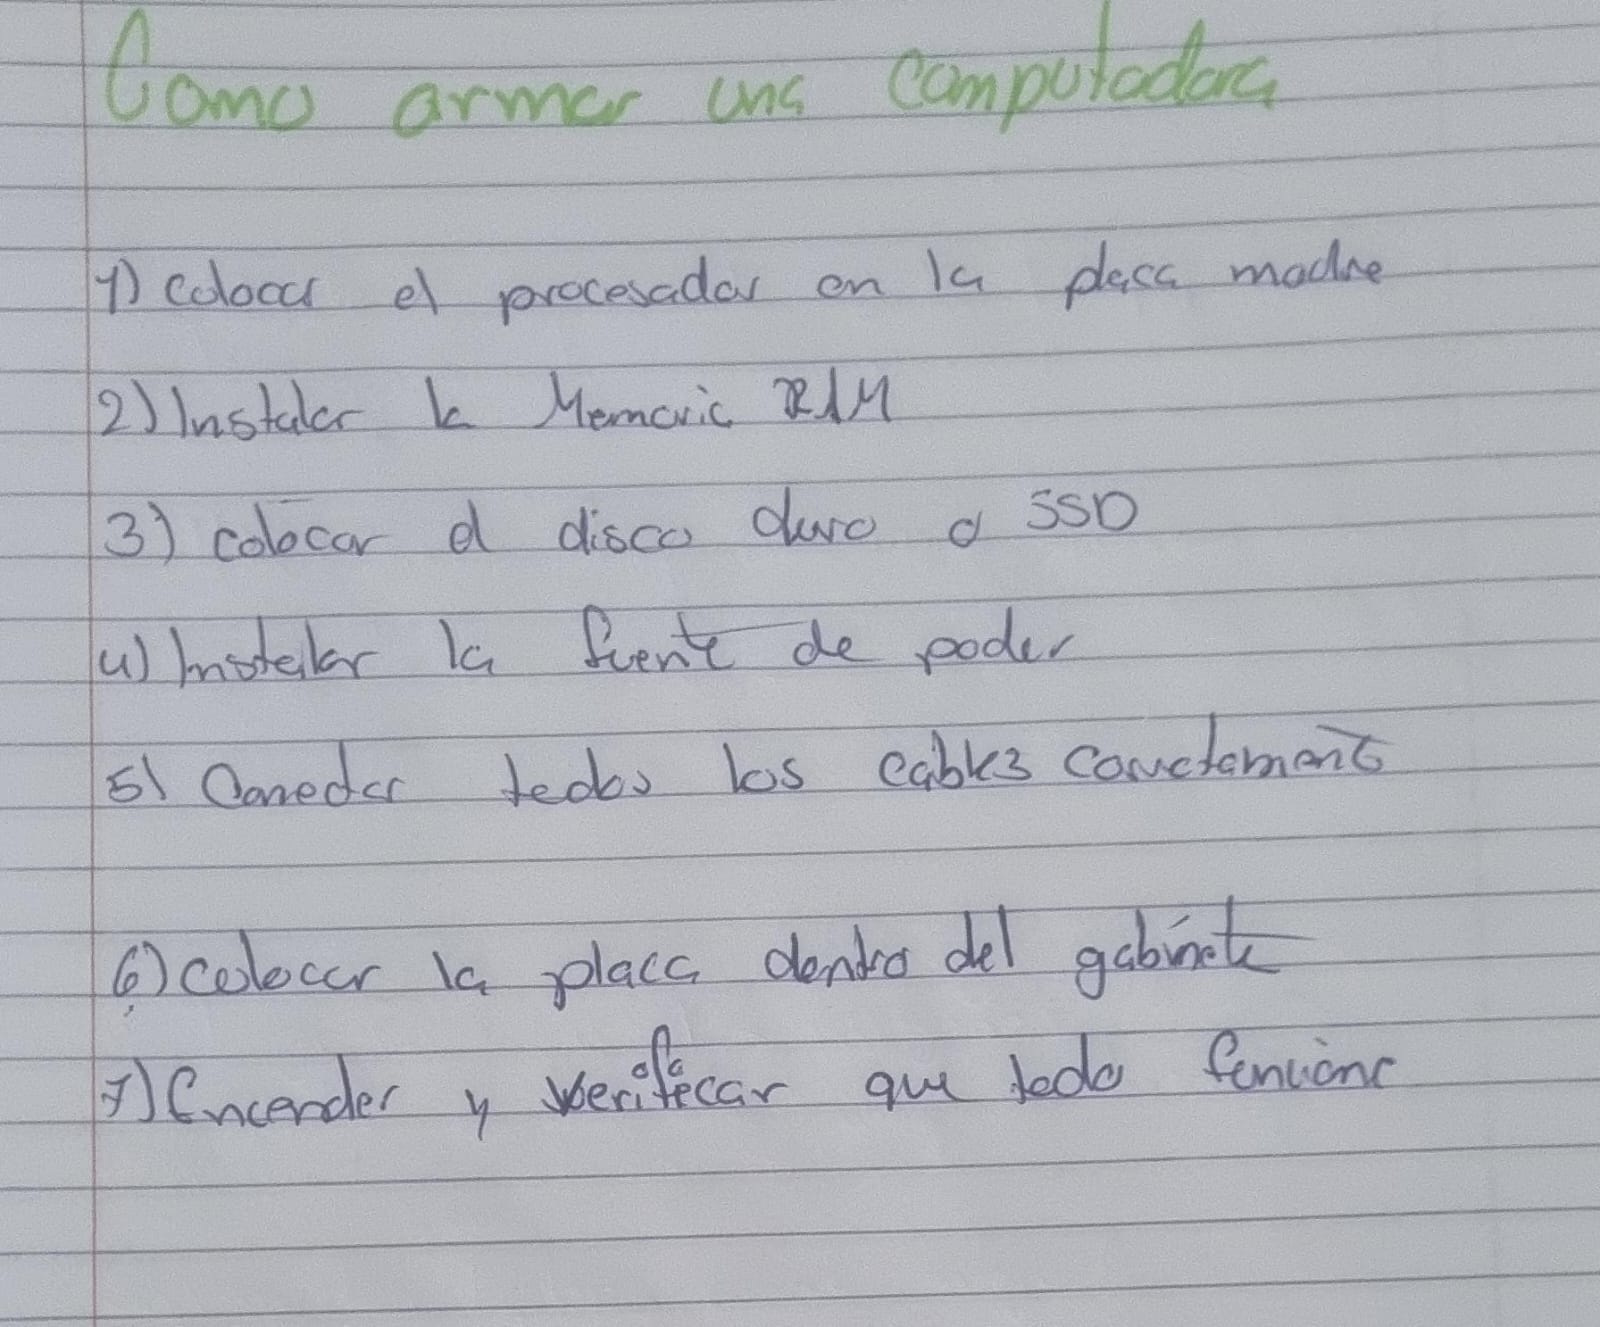 Como armar una computadora
1) Colocar el procesador en la placa madre
2) Instalar la Memoria RAM
3) colocar el disco duro o SSD
4) Instalar la fuente de poder
5) Conectar todos los cables correctamente
6) Colocar la placa dentro del gabinete
7) Encender y verificar que todo funciona